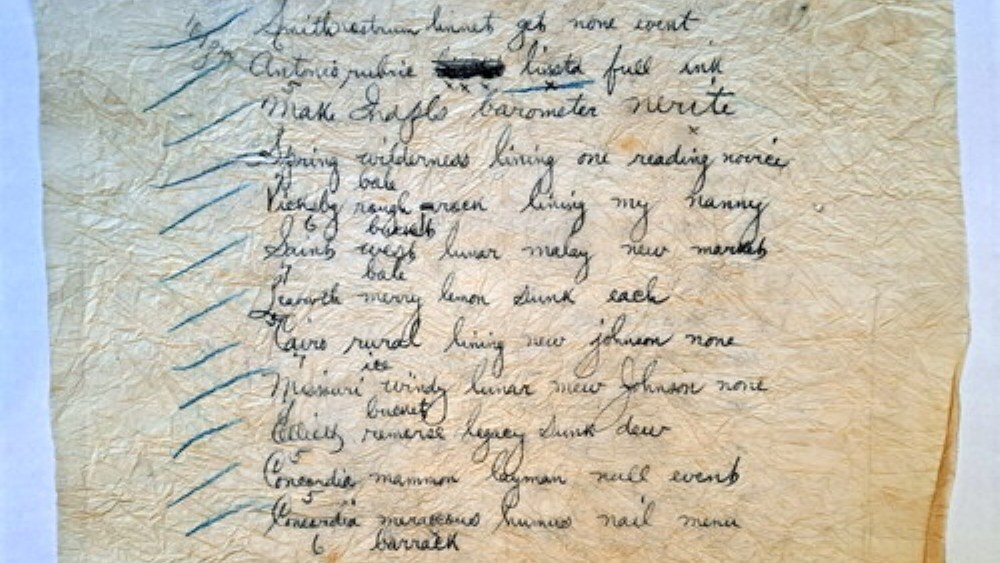 Smith nostrum linnet get none event
Antonio rubric linsta full ink
Make Indpls barometer nerite
Spring wilderness lining one reading novice
7 bale
Vicksbg rough rack lining my nanny
6 bucket
Saint west lunar malay new market
7 bale
Leavwth merry lemon sunk each
Cairo rural lining new johnson none
7 ice
Missouri windy lunar mew Johnson none
bucket
Elliott remorse legacy sunk dew
5
Concordia mammon layman null event
5
Concordia meraccous humus nail menu
6 barrack